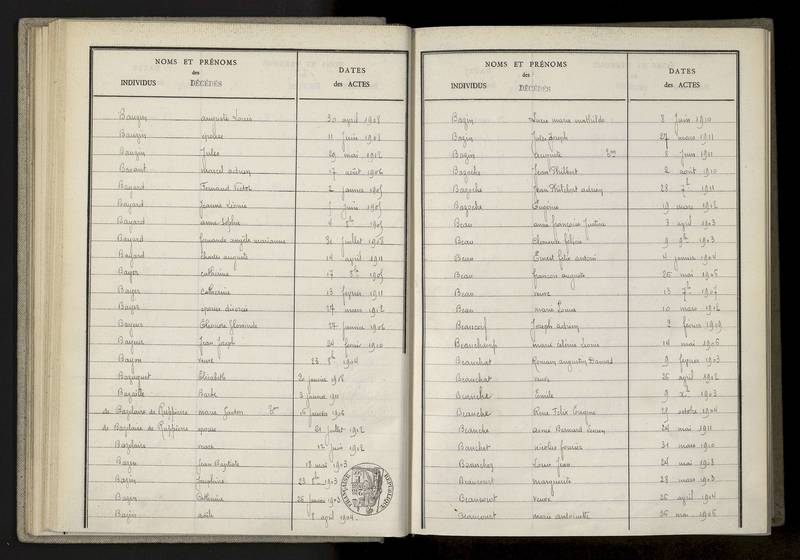 NOMS ET PRÉNOMS
des
INDIVIDUS DÉCÉDÉS
DATES
des ACTES
Bauzin auguste Louis 30 avril 1908
Bauzin épouse 11 Juin 1908
Bauzin Jules 29 mai 1912
Bavant Marcel adrien 17 août 1906
Bayard Fernand Victor 2 Janvier 1905
Bayard Jeanne Léonie Juin 1905
Bayard anne Sophie 4 8bre 1905
Bayard marianne 31 juillet 1908
Bayard Charles auguste 14 avril 1911
Bayer catherine 17 8bre 1905
Bayer Catherine 13 février 1911
Bayer épouse divorcée 27 mars 1912
Bayeur Éléonore 27 janvier 1906
Bayeur Jean Joseph 24 février 1910
Bayon veuve 28 8bre 1904
Bazuquet Elisabeth 20 janvier 1908
Bazaille Barbe 3 janvier 1911
de Bazelaire de Ruppierre marie 1906
de Bazelaire de Ruppierre épouse 21 Juillet 1912
Bazelaire veuve 12 Juin 1902
Bazin Jean Baptiste 13 mai 1903
Bazin Joséphine 23 8bre 1903
Bazin Catherine 26 janvier 1903
Bazin 8 avril 1904
RÉPUBLIQUE FRANÇAISE
NOMS ET PRÉNOMS
des
INDIVIDUS DÉCÉDÉS
DATES
des ACTES
Bazin Lucie marie mathilde 8 Juin 1910
Bazin Jules Joseph 27 mars 1911
Bazin 5 Juin 1911
Bazoche Jean Philbert 2 août 1910
Bazoche Jean Philibert adrien 28 7bre 1911
Bazoche Eugénie 19 mars 1912
Beau anne françoise Justine 3 avril 1903
Beau Clémente 9 9bre 1903
Beau Ernest Félix 4 janvier 1904
Beau françois auguste 25 mai 1905
Beau veuve 13 7bre 1907
Beau marie Louise 10 mars 1912
Beaucerf Joseph adrien 2 février 1909
Beauchamp marie Léonie 14 mai 1906
Beauchat Romain augustin 9 février 1903
Beauchat veuve 26 avril 1912
Beauche Emile 9 Xbre 1903
Beauche René Félix Eugène 28 octobre 1904
Beauche aimé Bernard Lucien 24 mai 1911
Bauchet nicolas 31 mars 1910
Beauchez Louis Jean 24 mai 1908
Beaucourt marguerite 28 mars 1903
Beaucourt veuve 26 avril 1904
Beaucourt marie antoinette 26 mai 1906